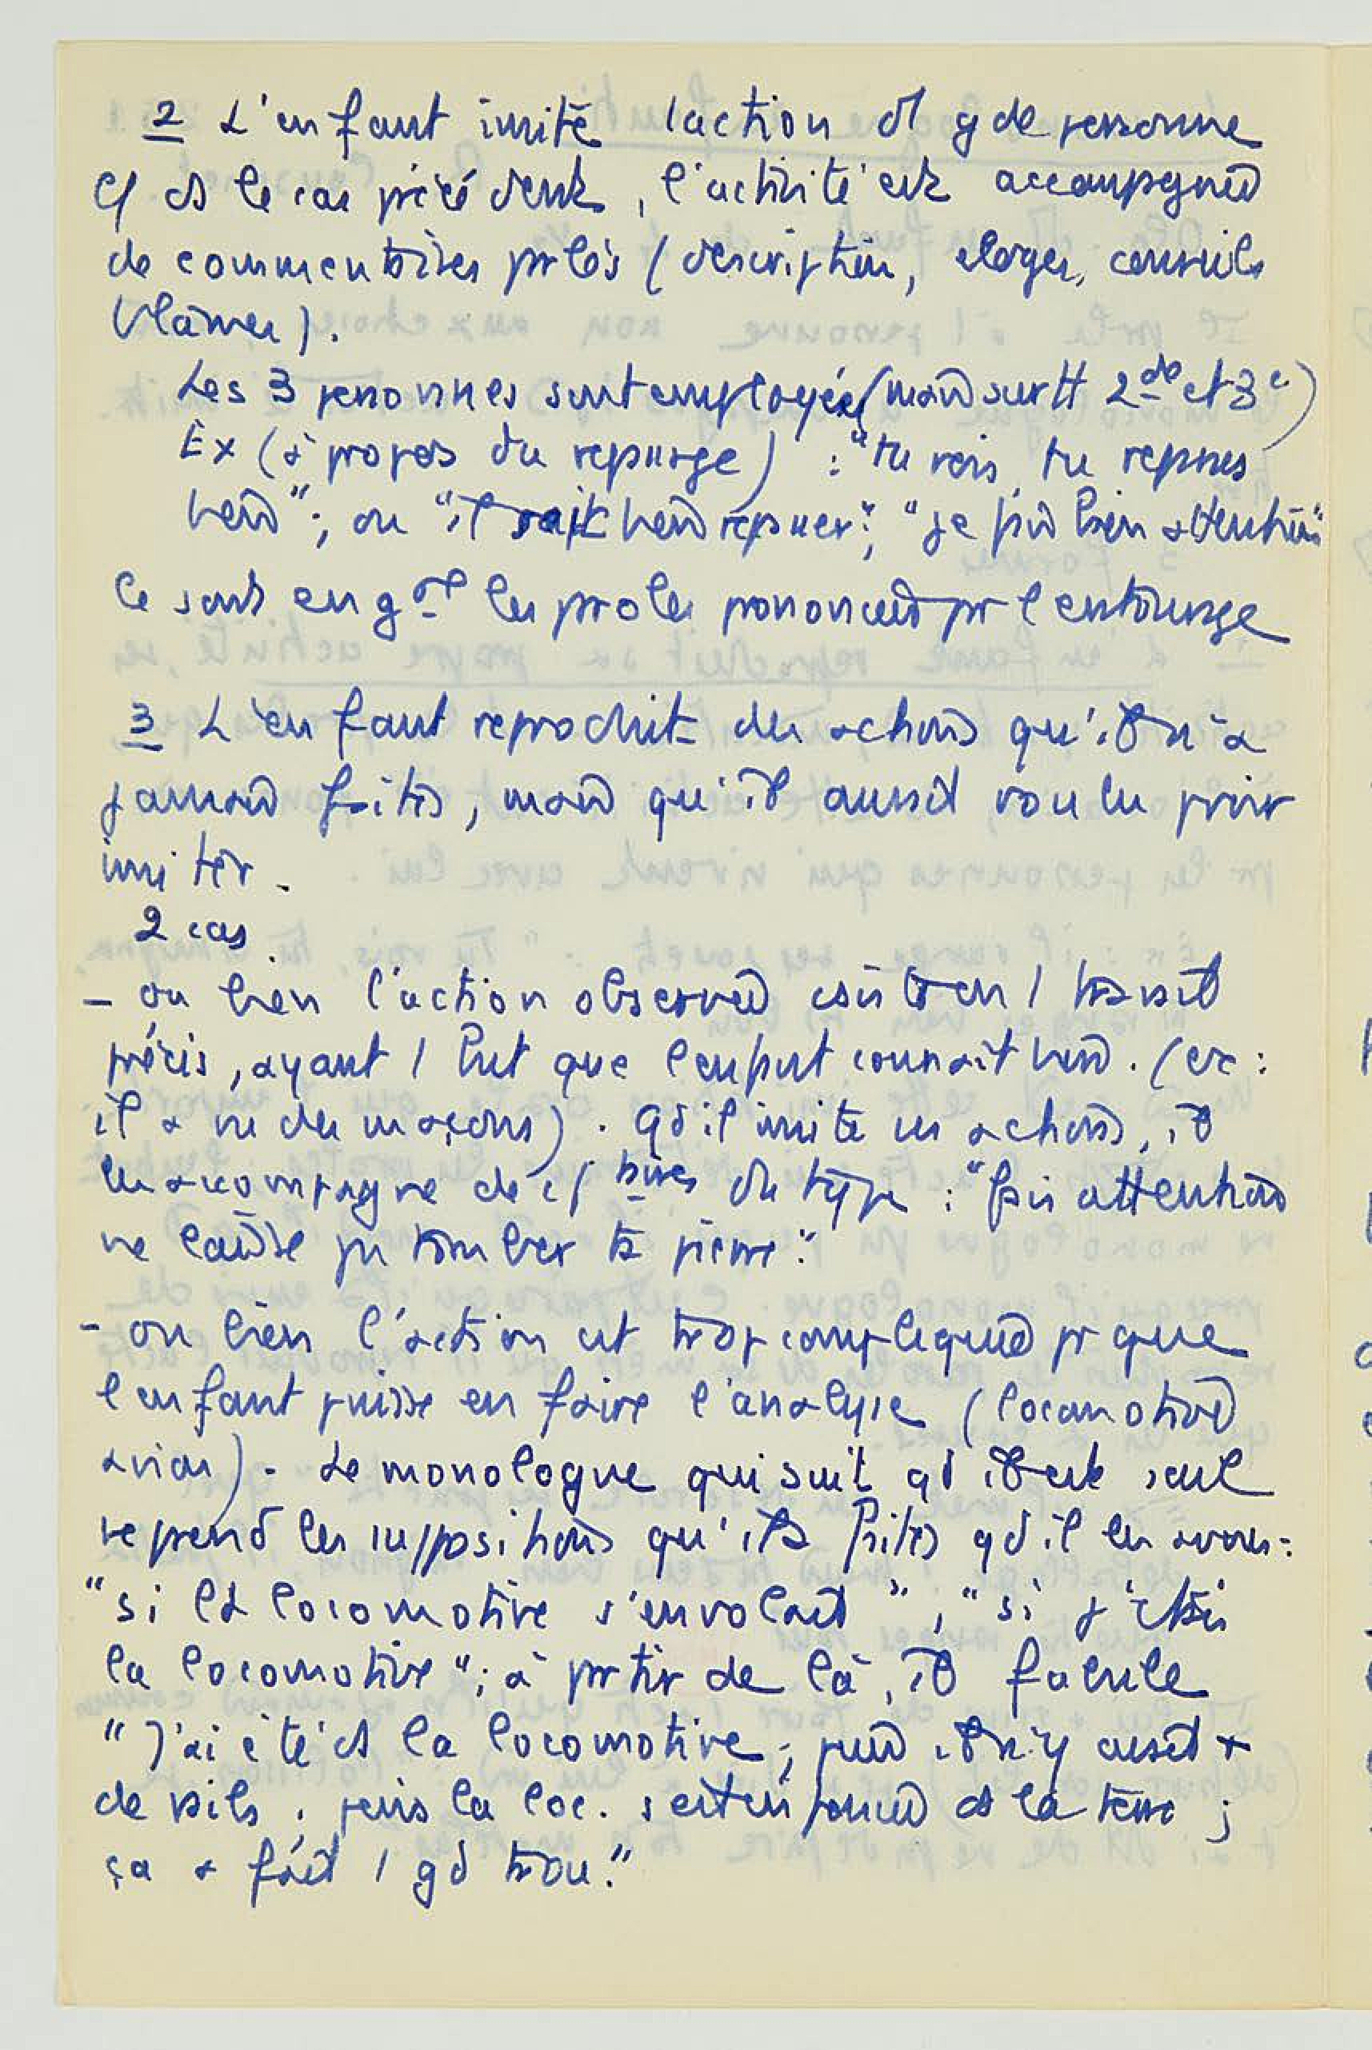 2 L'enfant imite l'action d'1 gde personne
Cf ds le cas précédent, l'activité est accompagnée
de commentaires parlés (description, éloges, conseils
blâmes).
Les 3 personnes sont employées (mais surtt 2de et 3e)
Ex (à propos du repassage) : "tu vois, tu repasses
bien"; ou "il sait bien repasser"; "je fais bien attention"
Ce sont en gal les paroles prononcées pr l'entourage
3 L'enfant reproduit des actions qu'il n'a
jamais faites, mais qu'il aurait voulu pvoir
imiter.
2 cas
- ou bien l'action observée consiste en 1 travail
précis, ayant 1 but que l'enfant connait bien. (ex :
il a vu des maçons). Qd il imite ces actions, il
les accompagne de cf taires du type : "fais attention
ne laisse pas tomber ta pierre".
- ou bien l'action est trop compliquée pr que
l'enfant puisse en faire l'analyse (locomotive
avion). Le monologue qui suit qd il est seul
reprend les suppositions qu'il a faites qd il les a vues :
"si la locomotive s'envolait" ; "si j'étais
la locomotive" ; à partir de là, il fabule
"J'ai été ds la locomotive ; puis il n'y avait +
de rails, puis la loc. s'est enfoncée ds la terre ;
ça a fait 1 gd trou."